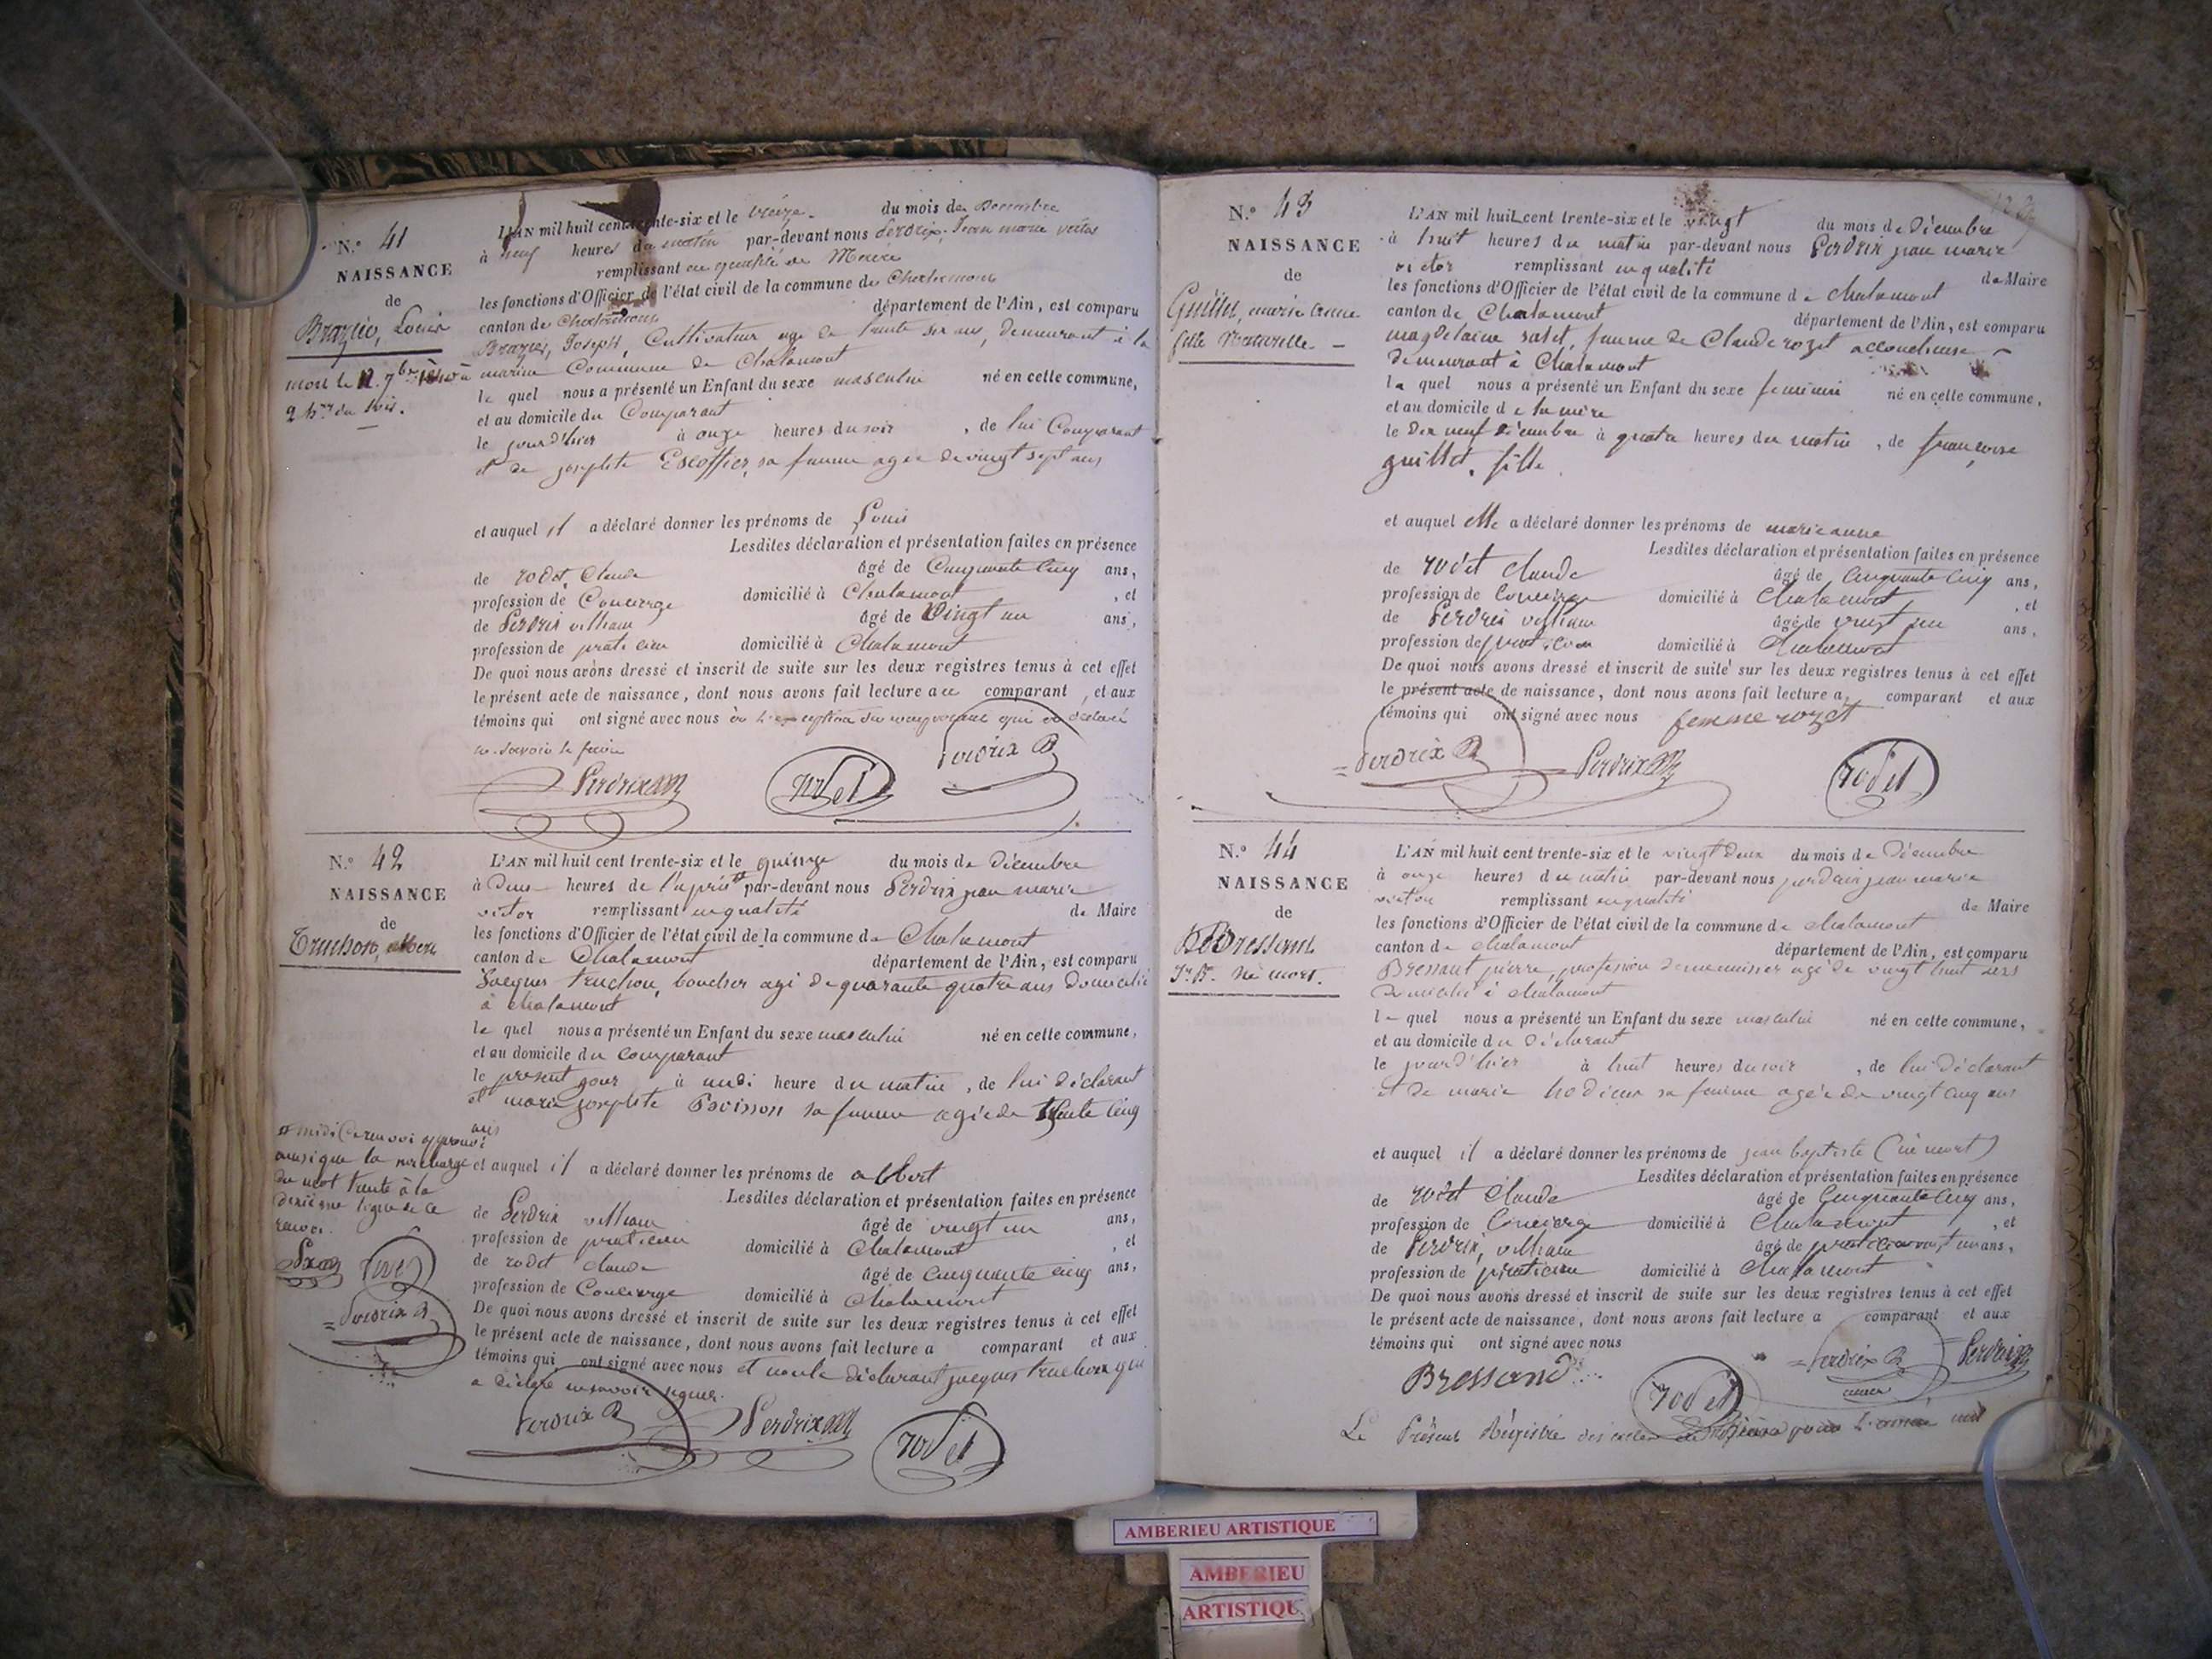 N.° 41
NAISSANCE
de
Brazier, Louis
mort le 12 7bre 1840 à
2 hres du soir.
L'AN mil huit cent trente-six et le treize du mois de Décembre
à neuf heures du matin par-devant nous Perdrix, Jean marie victor
remplissant en qualité de Maire
les fonctions d'Officier de l'état civil de la commune de Chalamont
canton de Chalamont département de l'Ain, est comparu
Brazier, Joseph, Cultivateur age de trente six ans, demeurant à la
marine Commune de Chalamont
le quel nous a présenté un Enfant du sexe masculin né en cette commune,
et au domicile du Comparant
le jour d'hier à onze heures du soir, de lui Comparant
et de josephte Escoffier, sa femme agée de vingt sept ans
et auquel il a déclaré donner les prénoms de Louis
Lesdites déclaration et présentation faites en présence
de rodet, Claude âgé de Cinquante Cinq ans,
profession de Concierge domicilié à Chalamont, et
de Perdrix villiam âgé de vingt un ans,
profession de praticien domicilié à Chalamont
De quoi nous avons dressé et inscrit de suite sur les deux registres tenus à cet effet
le présent acte de naissance, dont nous avons fait lecture au comparant, et aux
témoins qui ont signé avec nous à l'exception du comparant qui a déclaré
ne savoir le faire
Perdrix
rodet
Perdrix
N.° 42
NAISSANCE
de
Truchon, albert
L'AN mil huit cent trente-six et le quinze du mois de décembre
à Deux heures de l'après par-devant nous Perdrix jean marie
victor remplissant en qualité de Maire
les fonctions d'Officier de l'état civil de la commune de Chalamont
canton de Chalamont département de l'Ain, est comparu
Jacques truchon, boucher agé de quarante quatre ans domicilié
à Chalamont
le quel nous a présenté un Enfant du sexe masculin né en cette commune,
et au domicile du comparant
le présent jour à heure du matin, de lui déclarant
et marie josephte Poisson sa femme agée de trente cinq
ans
# midi Ce renvoi approuvé
ainsi que la surcharge
du mot trente à la
ligne de ce
renvoi.
Perdrix
et auquel il a déclaré donner les prénoms de albert
Lesdites déclaration et présentation faites en présence
de Perdrix villiam âgé de vingt un ans,
profession de praticien domicilié à Chalamont, et
de rodet claude âgé de Cinquante cinq ans,
profession de Concierge domicilié à Chalamont
De quoi nous avons dressé et inscrit de suite sur les deux registres tenus à cet effet
le présent acte de naissance, dont nous avons fait lecture a comparant et aux
témoins qui ont signé avec nous et non le déclarant jacques truchon qui
a déclaré ne savoir signer.
Perdrix
Perdrix
rodet
N.° 43
NAISSANCE
de
Guillet, marie anne
fille Naturelle
L'AN mil huit cent trente-six et le vingt du mois de Décembre
à huit heures du matin par-devant nous Perdrix jean marie
victor remplissant en qualité de Maire
les fonctions d'Officier de l'état civil de la commune de Chalamont
canton de Chalamont département de l'Ain, est comparu
magdelaine femme de Claude rozet accoucheuse
demeurant à Chalamont
la quel nous a présenté un Enfant du sexe feminin né en cette commune,
et au domicile de la mère
le Dix neuf décembre à quatre heures du matin, de françoise
guillet, fille
et auquel elle a déclaré donner les prénoms de marie anne
Lesdites déclaration et présentation faites en présence
de rodet claude âgé de Cinquante Cinq ans,
profession de Concierge domicilié à Chalamont, et
de Perdrix villiam âgé de vingt un ans,
profession de praticien domicilié à Chalamont
De quoi nous avons dressé et inscrit de suite sur les deux registres tenus à cet effet
le présent acte de naissance, dont nous avons fait lecture a comparant et aux
témoins qui ont signé avec nous femme rozet
Perdrix
Perdrix
rodet
N.° 44
NAISSANCE
de
Bressant
Jn Bte né mort.
L'AN mil huit cent trente-six et le vingt deux du mois de Décembre
à onze heures du matin par-devant nous perdrix jean marie
victor remplissant en qualité de Maire
les fonctions d'Officier de l'état civil de la commune de chalamont
canton de chalamont département de l'Ain, est comparu
Bressant pierre, profession de menuisier agé de vingt huit ans
domicilié à chalamont
le quel nous a présenté un Enfant du sexe masculin né en cette commune,
et au domicile du déclarant
le jour d'hier à huit heures du soir, de lui déclarant
et de marie sa femme agée de vingt cinq ans
et auquel il a déclaré donner les prénoms de jean baptiste (né mort)
Lesdites déclaration et présentation faites en présence
de rodet claude âgé de Cinquante Cinq ans,
profession de Concierge domicilié à Chalamont, et
de Perdrix, villiam âgé de vingt un ans,
profession de praticien domicilié à Chalamont
De quoi nous avons dressé et inscrit de suite sur les deux registres tenus à cet effet
le présent acte de naissance, dont nous avons fait lecture a comparant et aux
témoins qui ont signé avec nous
Bressand
rodet
Perdrix
Perdrix
Le Présent Régistre des actes de pour l'année mil
AMBERIEU ARTISTIQUE
AMBERIEU
ARTISTIQUE